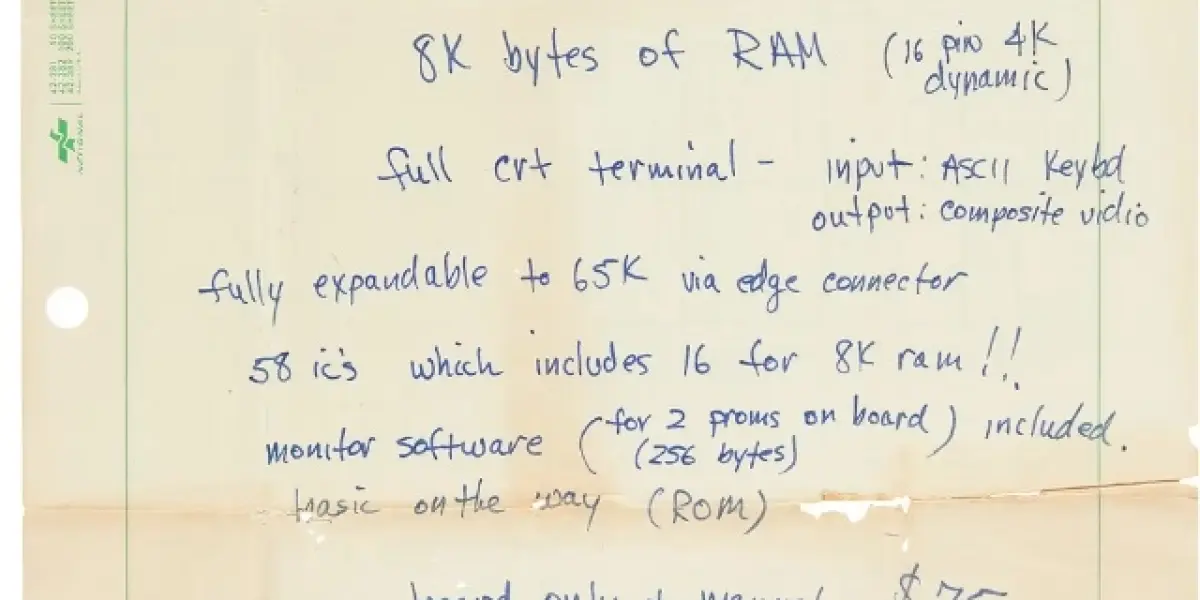 8K bytes of RAM (16 pin 4K
dynamic)
full crt terminal - input: ASCII Keybd
output: composite vidio
fully expandable to 65K via edge connector
58 ic's which includes 16 for 8K ram!!
monitor software (for 2 proms on board) included.
(256 bytes)
basic on the way (ROM)
board only + manual $75
NATIONAL